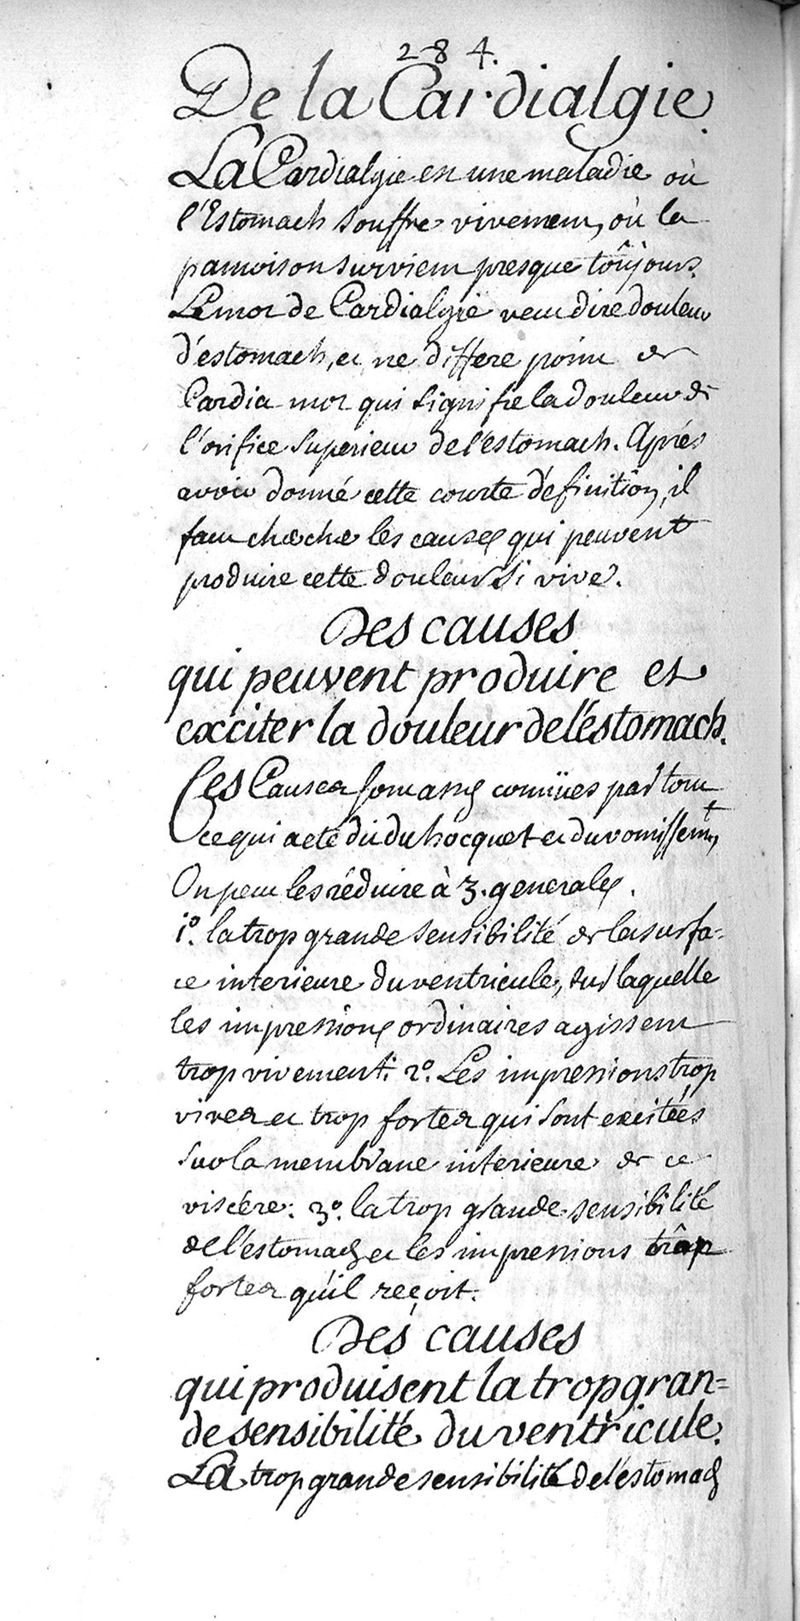 284.
De la Cardialgie.
La Cardialgie est une maladie où
l'Estomach souffre vivement, où la
pamoison survient presque toûjours.
Le mot de Cardialgie veut dire douleur
d'estomach, et ne differe point de
Cardia mot qui signifie la douleur de
l'orifice superieur de l'estomach. Aprés
avoir donné cette courte définition, il
faut chercher les causes qui peuvent
produire cette douleur si vive.
Des causes
qui peuvent produire et
exciter la douleur de l'éstomach.
Ces Causes sont assés connües par tout
ce qui a eté dit du hocquet et du vomissemt,
On peut les réduire à 3. generales.
1º. la trop grande sensibilité de la surfa-
ce interieure du ventricule, sur laquelle
les impressions ordinaires agissent
trop vivement. 2º. Les impressions trop
vives et trop fortes qui sont excitées
sur la membrane interieure de ce
viscére. 3º. la trop grande sensibilité
de l'estomach et les impressions trop
fortes qu'il reçoit.
Des causes
qui produisent la trop gran=
de sensibilité du ventricule.
La trop grande sensibilité de l'éstomach